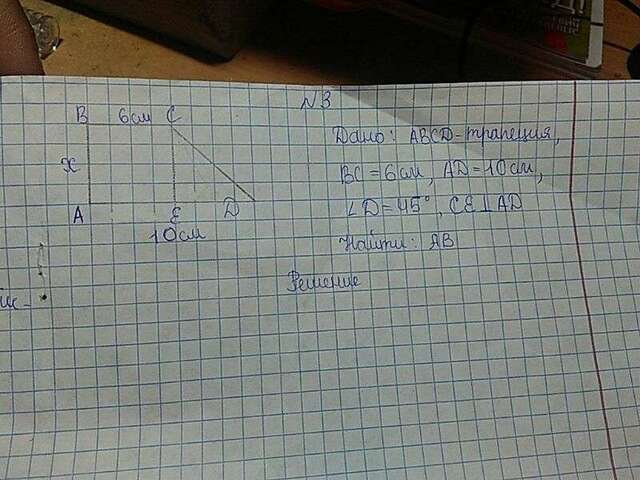 N3
B 6см C
x
A E D
10см
Дано: ABCD-трапеция,
BC=6см, AD=10см,
∠D=45°, CE⊥AD
Найти: AB
Решение